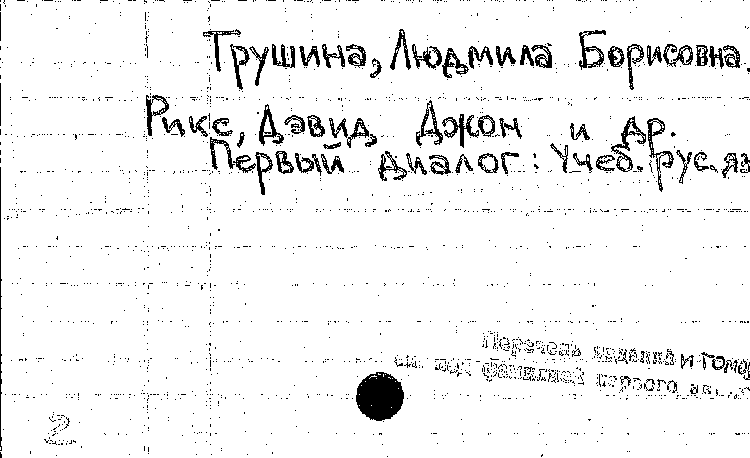 Трушина, Людмила Борисовна.
Рикс, Дэвид Джон и др.
Первый диалог: Учеб. рус. яз
Перечень изданий и томов
см. под фамилией первого ав
2